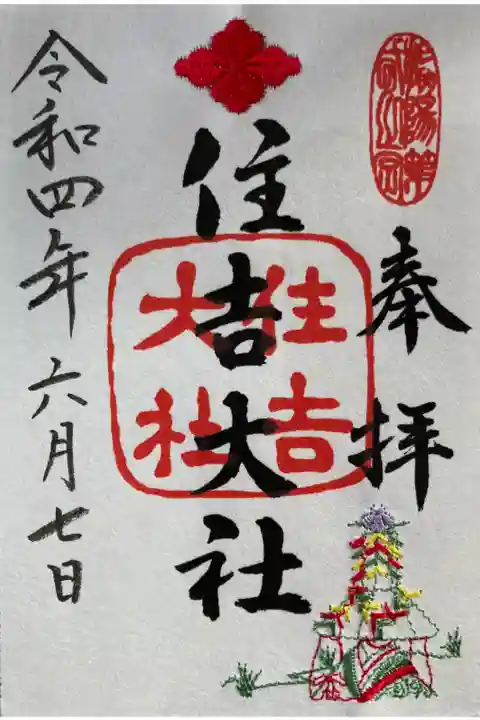 奉拝
住吉大社
住吉大社
令和四年六月七日